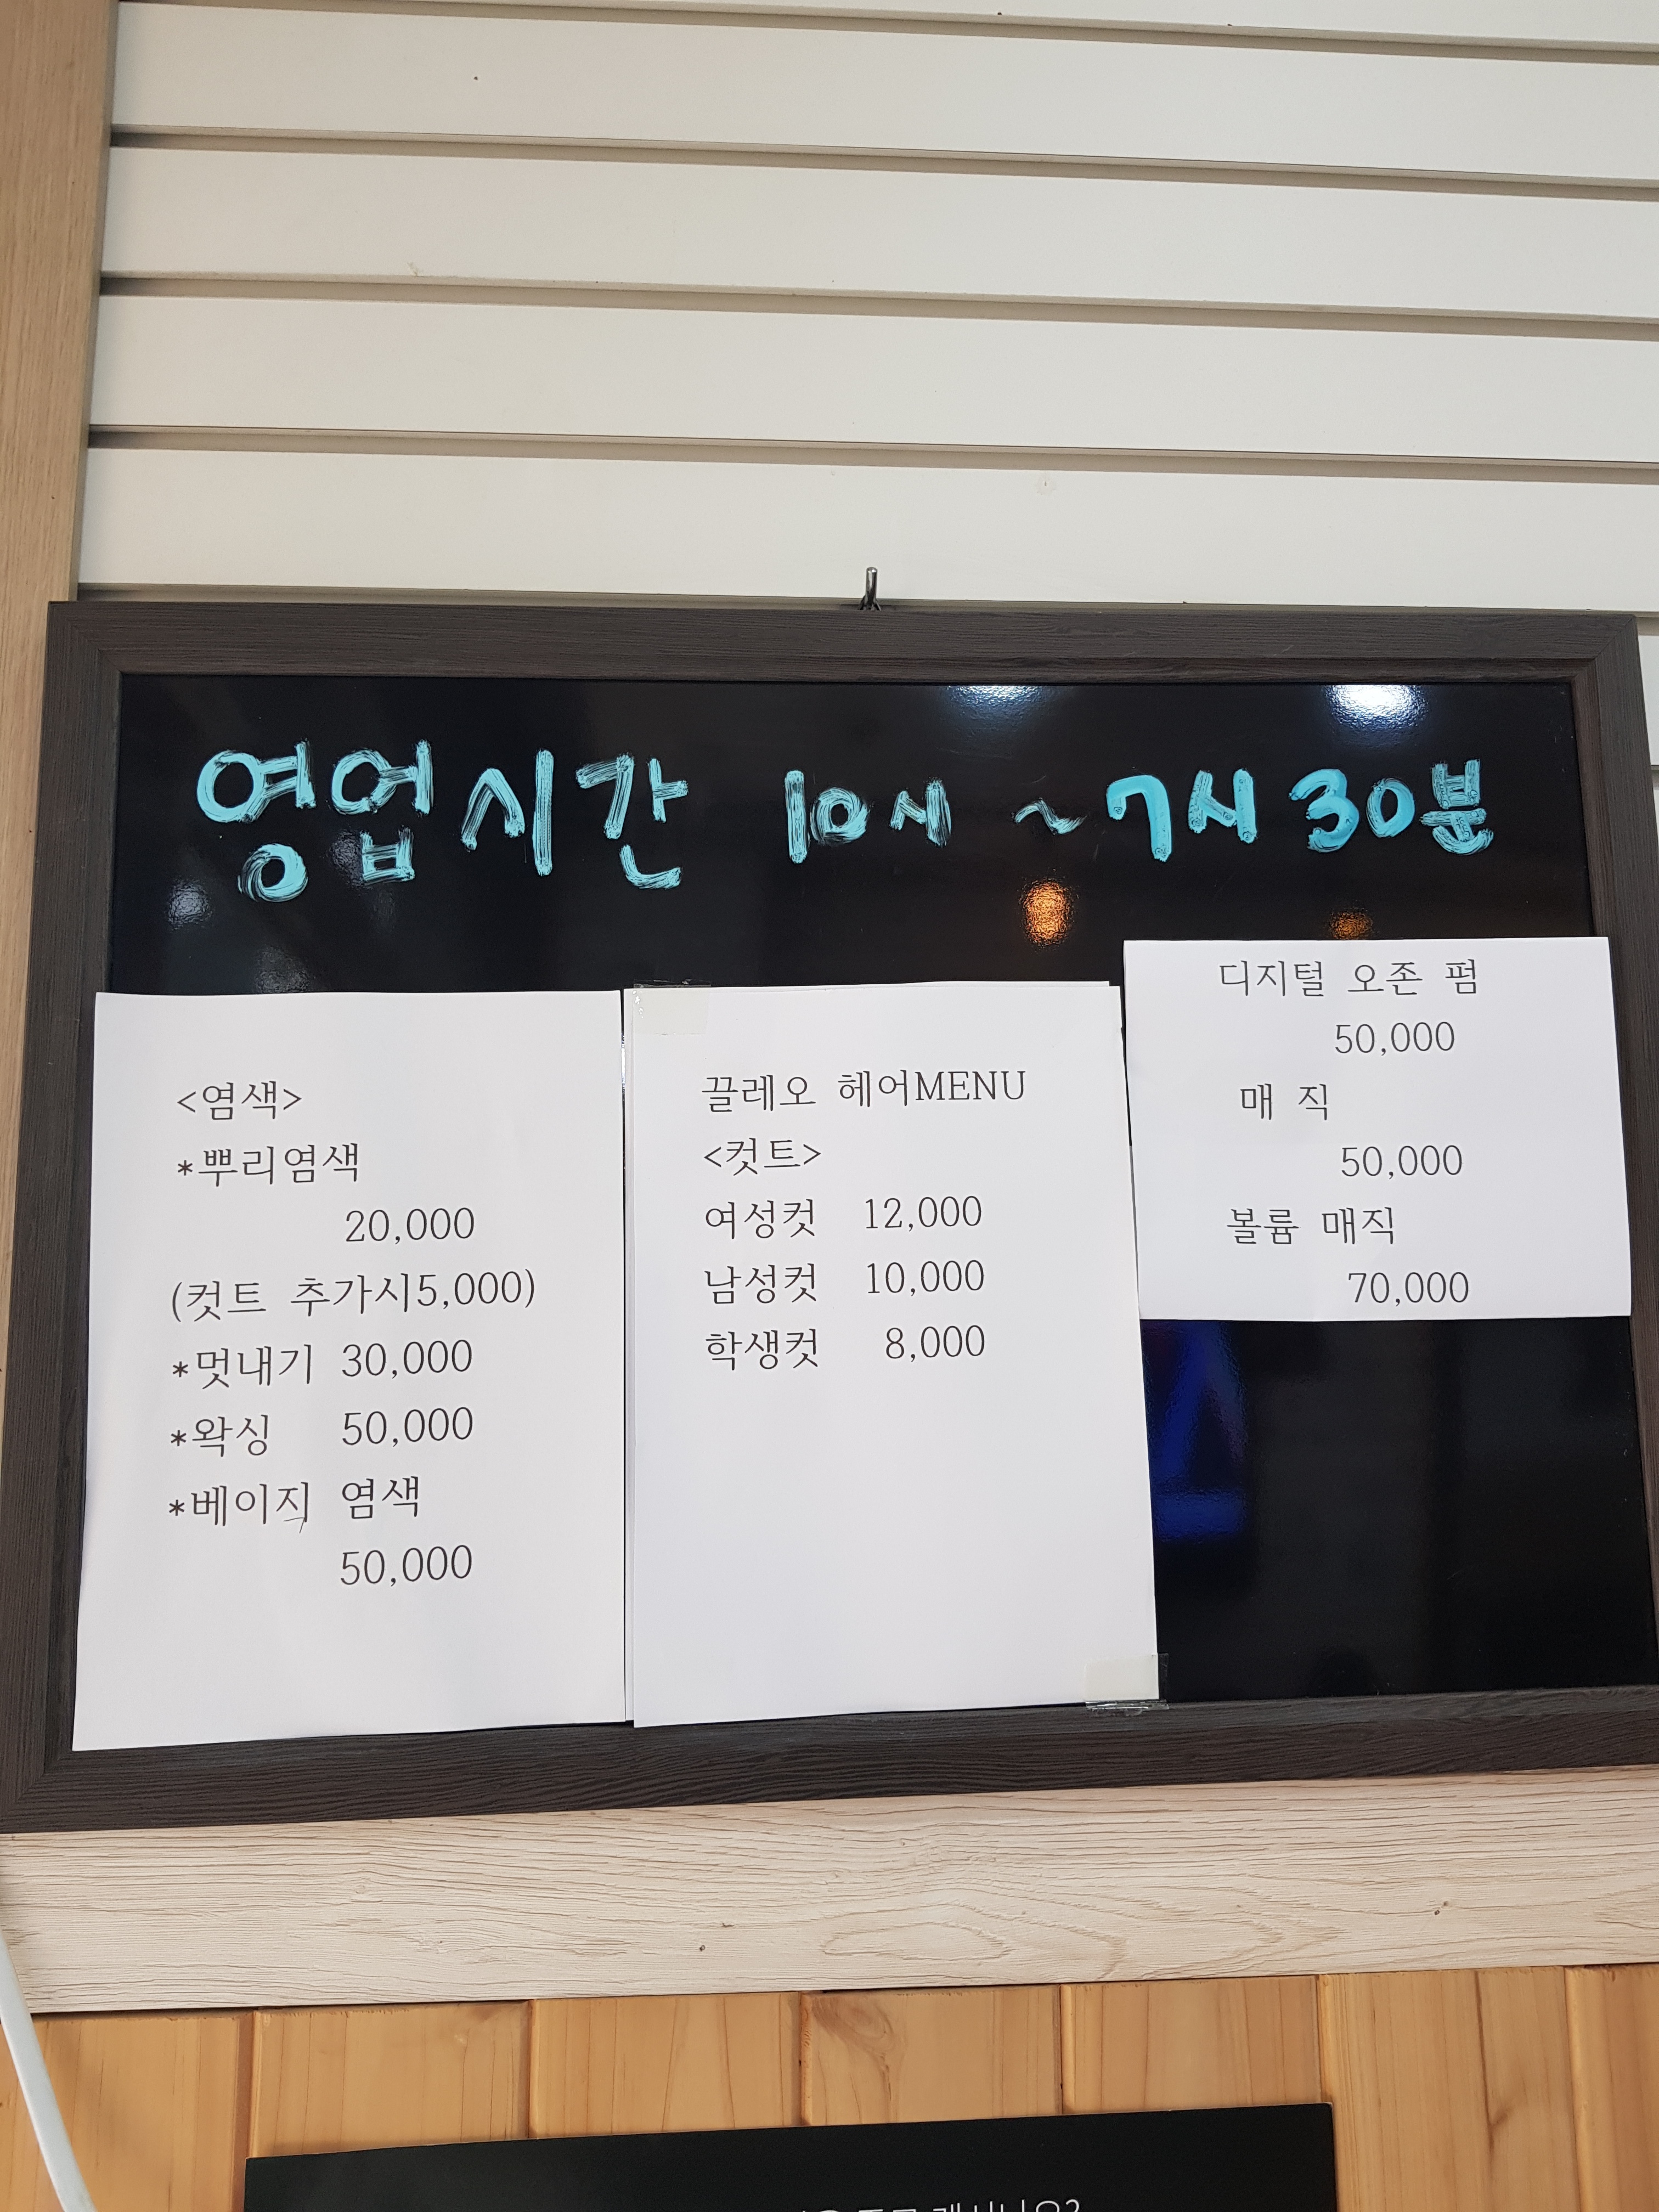 영업시간 10시 ~ 7시 30분
<염색>
*뿌리염색
20,000
(컷트 추가시5,000)
*멋내기 30,000
*왁싱 50,000
*베이지 염색
50,000
끌레오 헤어MENU
<컷트>
여성컷 12,000
남성컷 10,000
학생컷 8,000
디지털 오존 펌
50,000
매 직
50,000
볼륨 매직
70,000